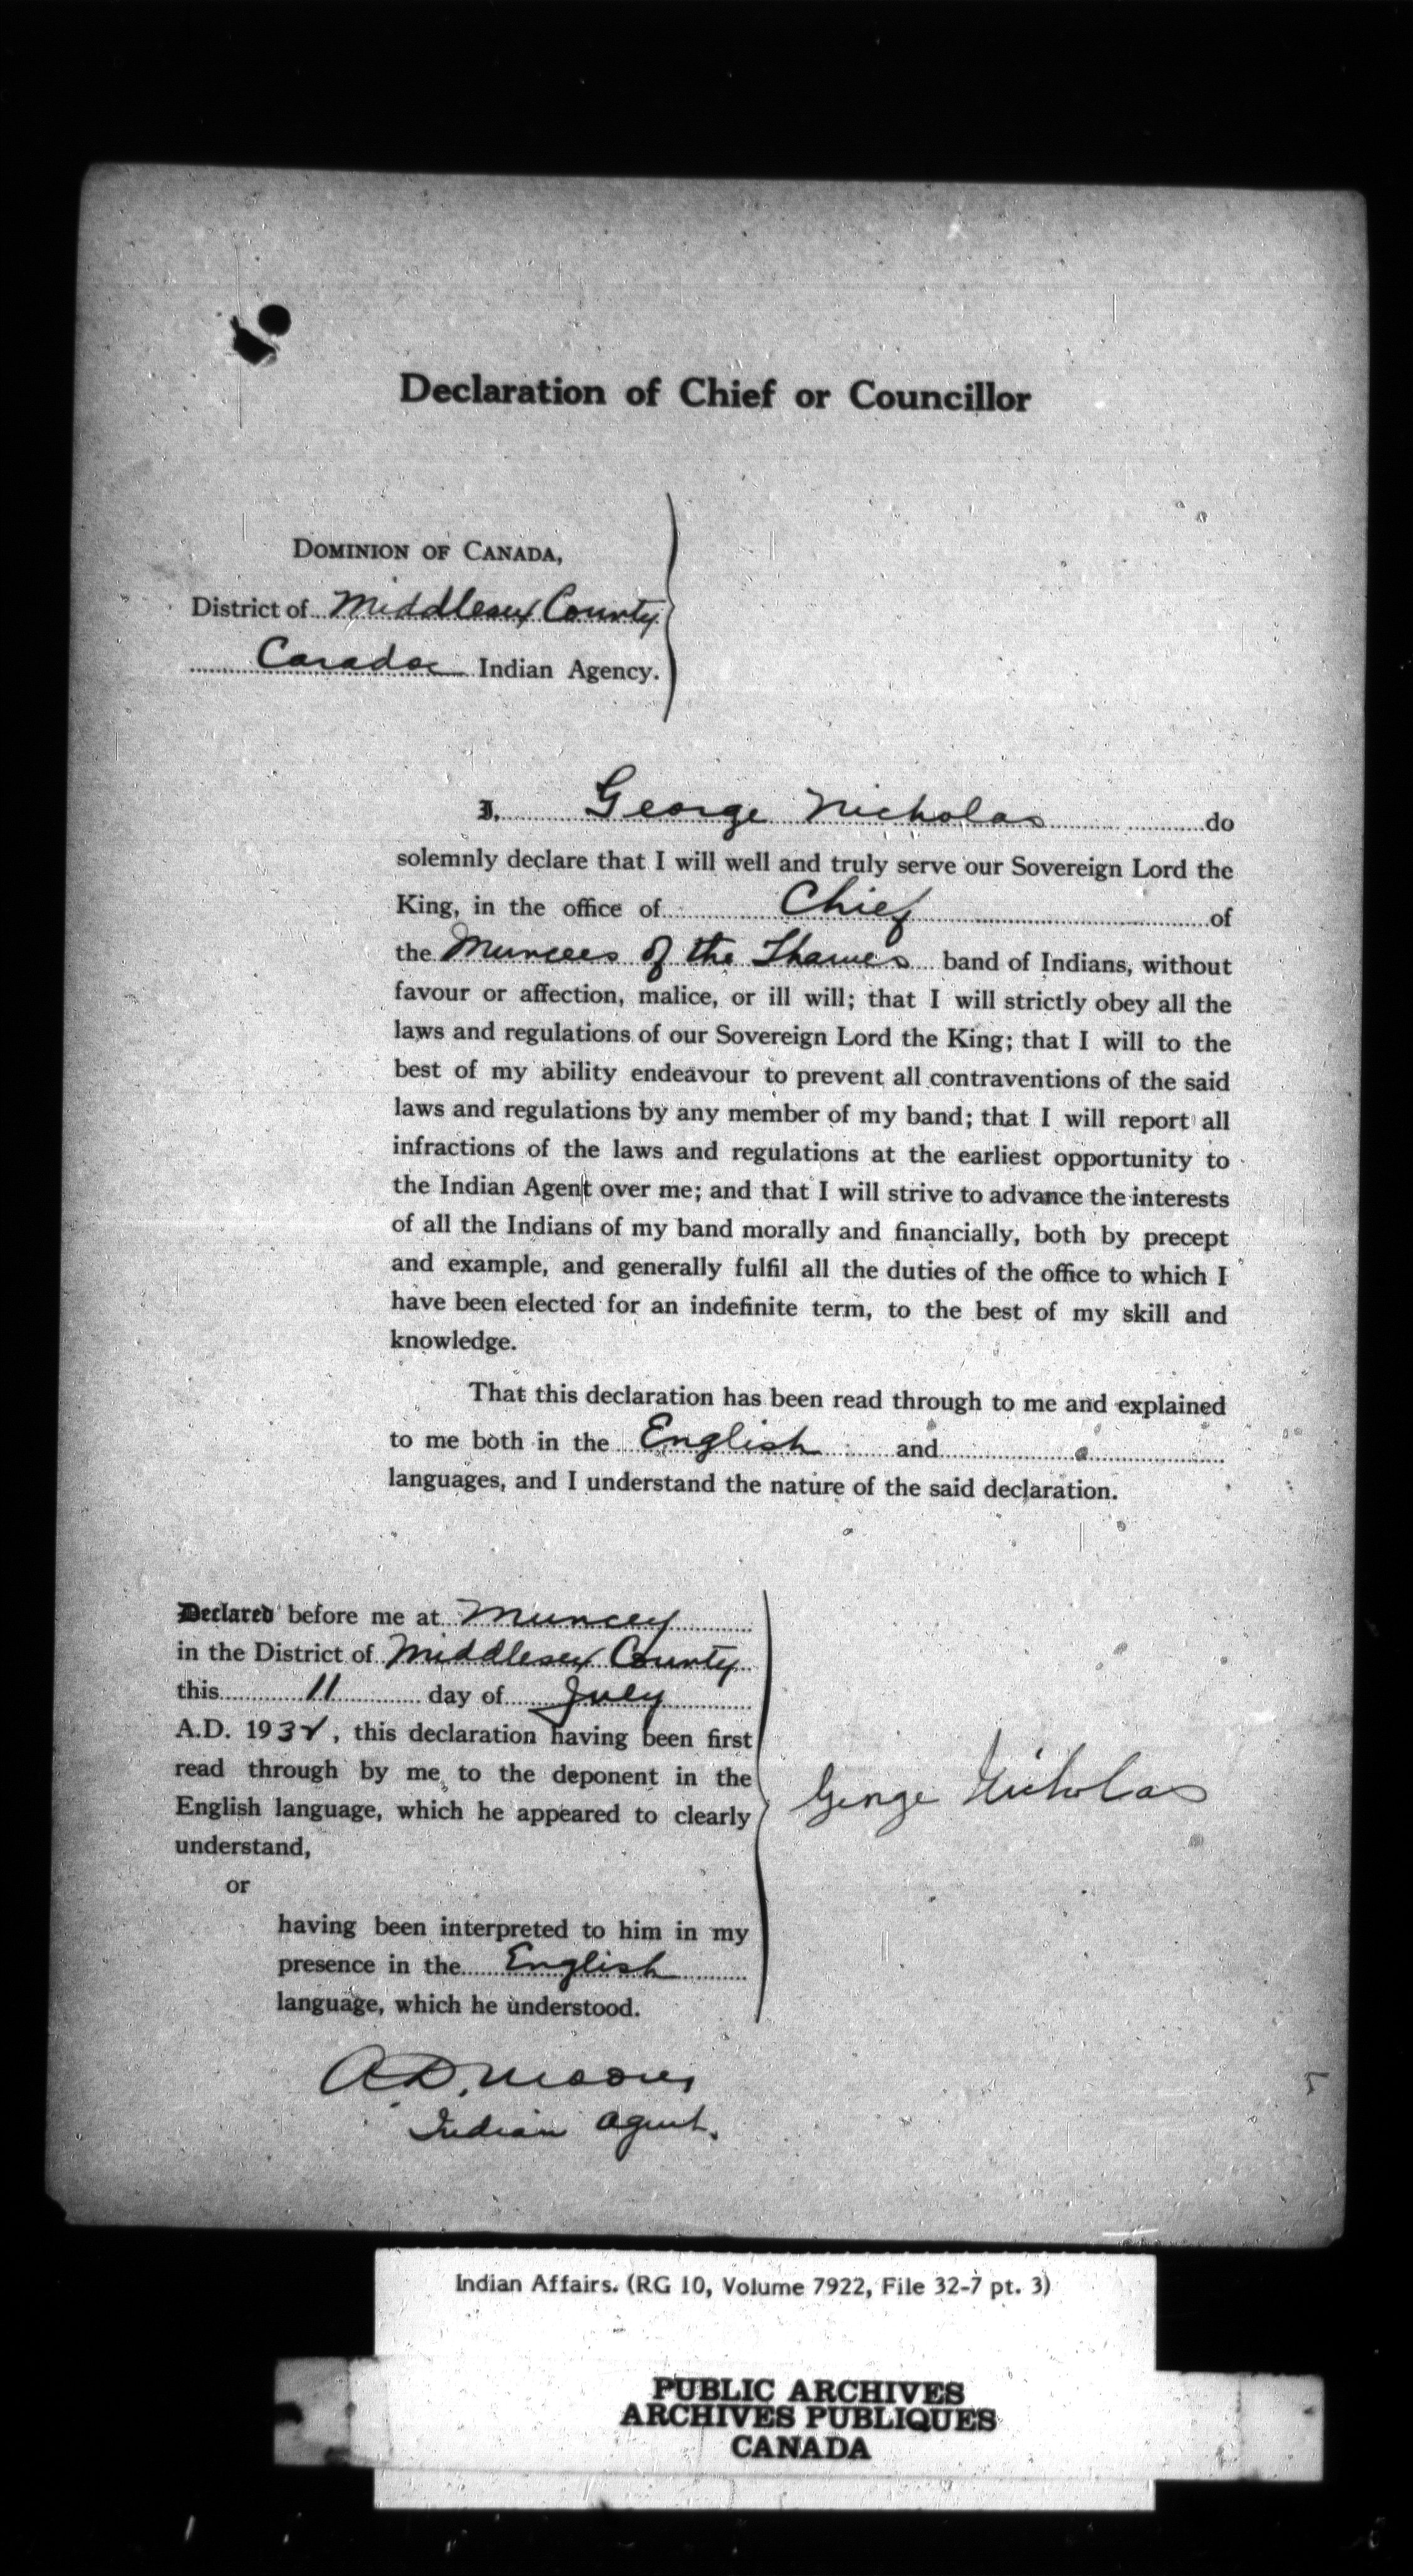 Declaration of Chief or Councillor
DOMINION OF CANADA,
District of Middlesex County
Caradoc Indian Agency.
I, George Nicholas do
solemnly declare that I will well and truly serve our Sovereign Lord the
King, in the office of Chief of
the Muncees of the Thames band of Indians, without
favour or affection, malice, or ill will; that I will strictly obey all the
laws and regulations of our Sovereign Lord the King; that I will to the
best of my ability endeavour to prevent all contraventions of the said
laws and regulations by any member of my band; that I will report all
infractions of the laws and regulations at the earliest opportunity to
the Indian Agent over me; and that I will strive to advance the interests
of all the Indians of my band morally and financially, both by precept
and example, and generally fulfil all the duties of the office to which I
have been elected for an indefinite term, to the best of my skill and
knowledge.
That this declaration has been read through to me and explained
to me both in the English and
languages, and I understand the nature of the said declaration.
Declared before me at Muncey
in the District of Middlesex County
this 11 day of July
A.D. 1932, this declaration having been first
read through by me to the deponent in the
English language, which he appeared to clearly
understand,
or
having been interpreted to him in my
presence in the English
language, which he understood.
George Nicholas
A.D. Moore
Indian Agent.
Indian Affairs. (RG 10, Volume 7922, File 32-7 pt. 3)
PUBLIC ARCHIVES
ARCHIVES PUBLIQUES
CANADA